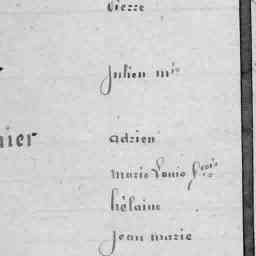 Pierre
Julien mie
nier adrien
marie Louise frois
hélaine
Jean marie